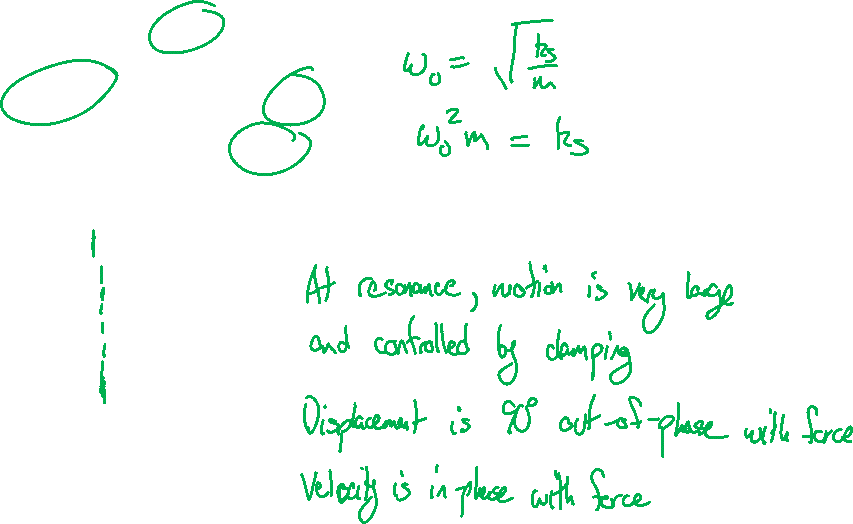 ω₀ = √(ks/m)
ω₀²m = ks
At resonance, motion is very large
and controlled by damping
Displacement is 90° out-of-phase with force
Velocity is in phase with force